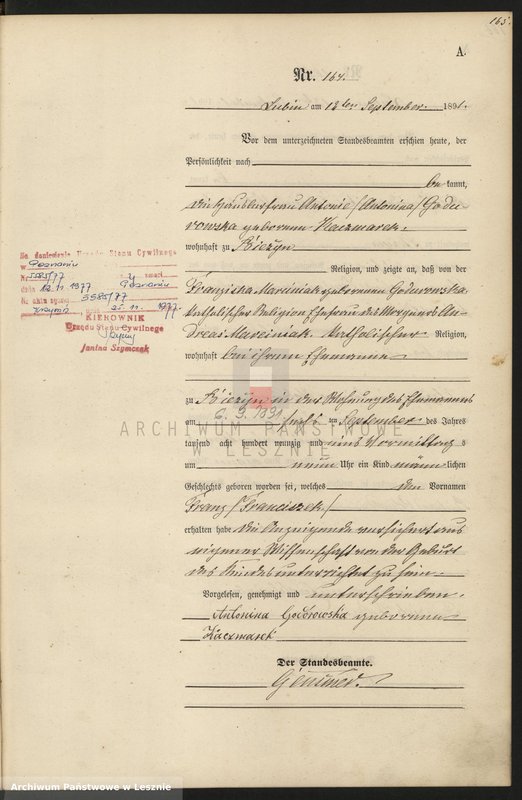 165.
A.
Nr. 164.
Lubin am 12ten September 1891.
Vor dem unterzeichneten Standesbeamten erschien heute, der
Persönlichkeit nach
be kannt,
die Häuslerfrau Antonie /Antonina/ Godu-
rowska geborenen Kaczmarek
wohnhaft zu Bieżyn
Religion, und zeigte an, daß von der
Franziska Marciniak geborenen Godurowska
katholischer Religion Ehefrau des An-
dreas Marciniak katholischer Religion,
wohnhaft bei ihrem Ehemanne
zu Bieżyn in der Wohnung des Ehemannes
6. 9. 1891
am ten September des Jahres
tausend acht hundert neunzig und eins Vormittag s
um neun Uhr ein Kind männ lichen
Geschlechts geboren worden sei, welches den Vornamen
Franz /Franciszek/
erhalten habe die Anzeigende versichert aus
eigener Wissenschaft von der Geburt
des Kindes unterrichtet zu sein.
Vorgelesen, genehmigt und unterschrieben.
Antonina Godorowska geborene
Kaczmarek
Der Standesbeamte.
Na doniesienie Urzędu Stanu Cywilnego
w Poznaniu
Nr. 5585/77 zmarł
dnia 12.11.1977 w Poznaniu
Nr aktu zgonu 5585/77
dnia 25.11.1977 r.
KIEROWNIK
Urzędu Stanu Cywilnego
Janina Szymczak
ARCHIWUM PAŃSTWOWE
W LESZNIE
Archiwum Państwowe w Lesznie